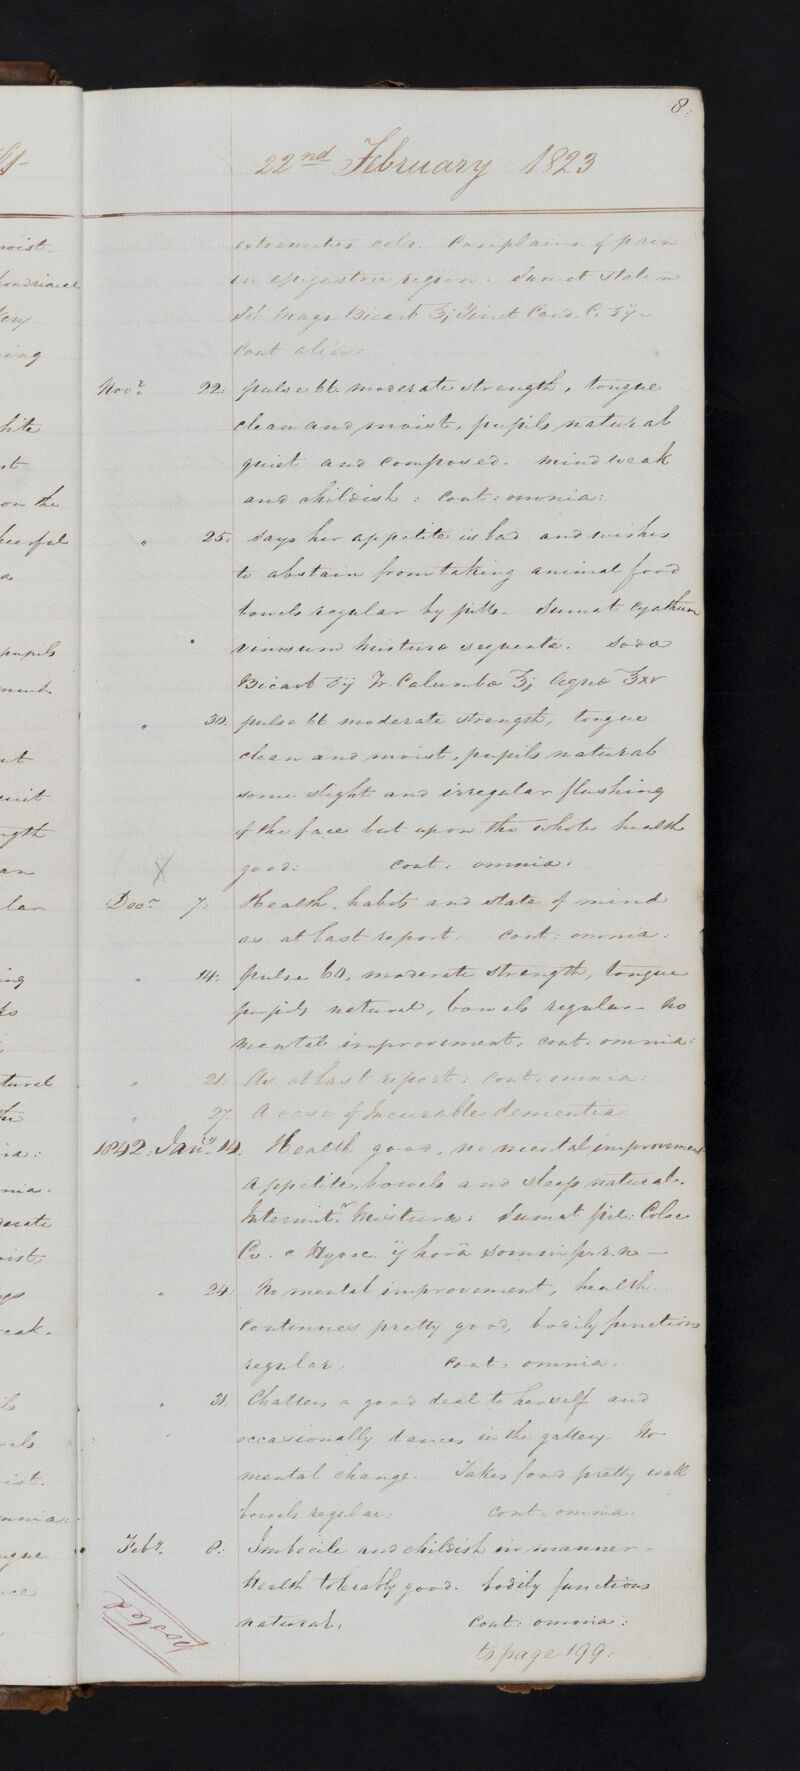 8.
22nd February 1823
extremities cold. Complains of pain
in epigastric region. Sumat statim
Sol. Magn Bicarb ℥j Tinct Card. C. ʒij.
Cont alia:
Novr. 22. pulse 66. moderate strength, tongue
clean and moist, pupils natural
quiet and composed. mind weak
and childish: cont: omnia:
" 25: Says her appetite is bad and wishes
to abstain from taking animal food
bowels regular by pills. Sumat cyathum
vinosum misturæ sequente. Sodæ
Bicarb ʒij Tr. Calumbæ ℥j Aquæ ℥xv
" 30. pulse 66 moderate strength, tongue
clean and moist, pupils natural
some slight and irregular flushing
of the face but upon the whole health
good: cont: omnia:
X
Decr. 7: Health, habits and state of mind
as at last report: cont: omnia:
" 14: pulse 60, moderate strength, tongue
pupils natural, bowels regular - no
mental improvement, cont: omnia:
" 21: As at last report: cont: omnia:
" 27 A case of Incurable dementia:
1842: Jany. 14. Health good, no mental improvement
Appetite, bowels and sleep natural.
Intermitr. Mistura: Sumat pil: Coloc
Co. c Hyosc. ij horâ somni p.r.n —
" 24: No mental improvement, health
continues pretty good, bodily functions
regular. cont: omnia.
" 31: Chatters a good deal to herself and
occasionally dances in the gallery. No
mental change. Takes food pretty well
bowels regular: cont: omnia:
Febr. 8: Imbecile and childish in manner -
Health tolerably good. bodily functions
natural: cont: omnia:
posted
to page 199: